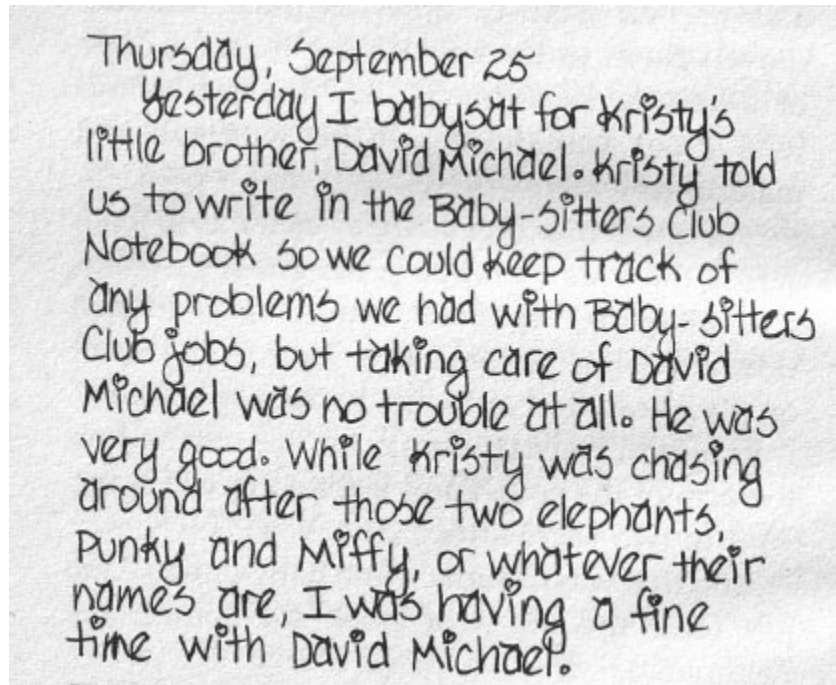 Thursday, September 25
Yesterday I babysat for Kristy's
little brother, David Michael. Kristy told
us to write in the Baby-sitters Club
Notebook so we could keep track of
any problems we had with Baby-sitters
Club jobs, but taking care of David
Michael was no trouble at all. He was
very good. While Kristy was chasing
around after those two elephants,
Punky and Miffy, or whatever their
names are, I was having a fine
time with David Michael.